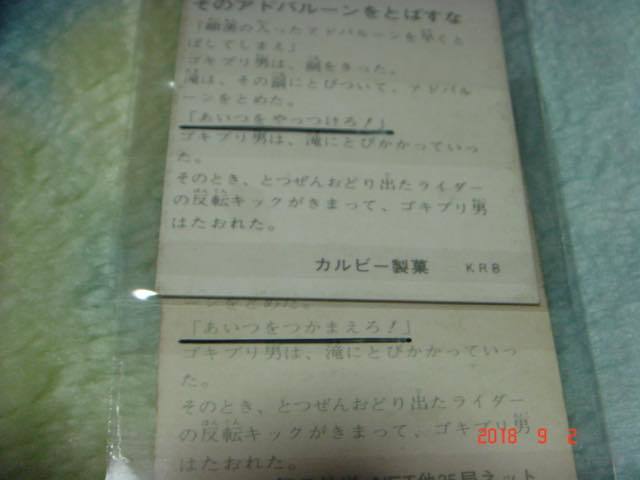 そのアドバルーンをとばすな
「細菌の入ったアドバルーンを早くと
ばしてしまえ」
ゴキブリ男は、綱をきった。
滝は、その綱にとびついて、アドバル
ーンをとめた。
「あいつをやっつけろ！」
ゴキブリ男は、滝にとびかかっていっ
た。
そのとき、とつぜんおどり出たライダー
の反転キックがきまって、ゴキブリ男
はたおれた。
カルビー製菓 KRB
ーンをとめた。
「あいつをつかまえろ！」
ゴキブリ男は、滝にとびかかっていっ
た。
そのとき、とつぜんおどり出たライダー
の反転キックがきまって、ゴキブリ男
はたおれた。
NET他25局ネット
2018 9 2